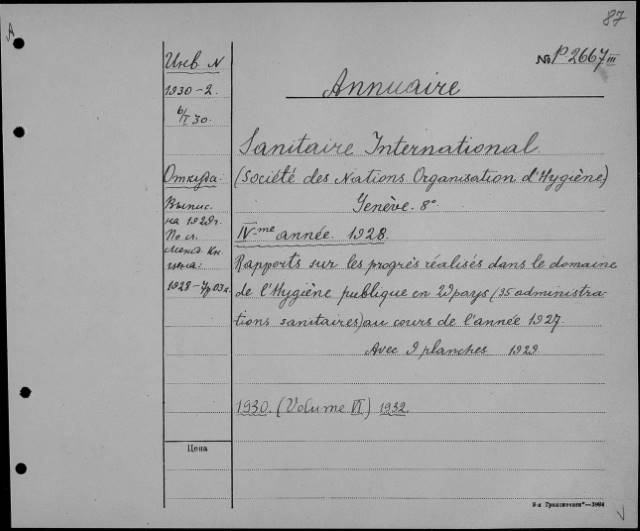 87
A
Инв N
№ P. 2667 III
1930-2.
Annuaire
6/I 30.
Sanitaire International
Откуда:
(Société des Nations Organisation d'Hygiène)
Выпис.
Genève. 8°
на 1929г.
IV-me année. 1928.
По сч.
Межд. Кн.
Rapports sur les progrès réalisés dans le domaine
цена:
de l'Hygiène publique en 29 pays (35 administra-
1928-
tions sanitaires) au cours de l'année 1927.
Avec 9 planches 1929
1930. (Volume VI) 1932.
Цена
1924
V